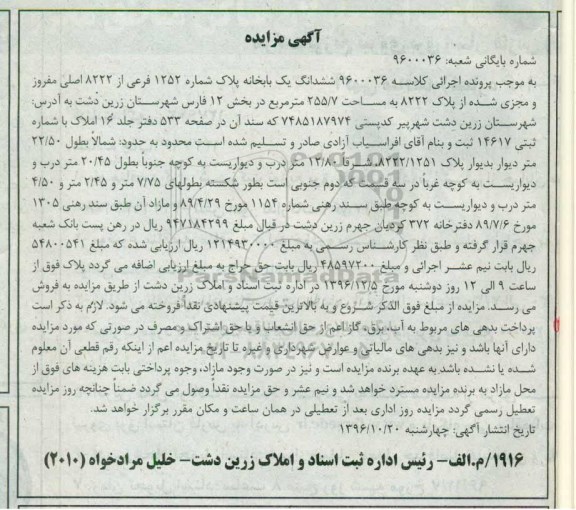 آگهی مزایده
شماره بایگانی شعبه: ۹۶۰۰۰۳۶
به موجب پرونده اجرائی کلاسه ۹۶۰۰۰۳۶ ششدانگ یک بابخانه پلاک شماره ۱۲۵۲ فرعی از ۸۲۲۲ اصلی مفروز
و مجزی شده از پلاک ۸۲۲۲ به مساحت ۲۵۵/۷ مترمربع در بخش ۱۲ فارس شهرستان زرین دشت به آدرس:
شهرستان زرین دشت شهرپیر کدپستی ۷۴۸۵۱۸۷۹۷۴ که سند آن در صفحه ۵۳۳ دفتر جلد ۱۶ املاک با شماره
ثبتی ۱۴۶۱۷ ثبت و بنام آقای افراسیاب آزادی صادر و تسلیم شده است محدود به حدود: شمالاً بطول ۲۲/۵۰
متر دیوار بدیوار پلاک ۸۲۲۲/۱۲۵۱ شرقاً ۱۲/۸۰ متر درب و دیواریست به کوچه جنوباً بطول ۲۰/۴۵ متر درب و
دیواریست به کوچه غرباً در سه قسمت که دوم جنوبی است بطور شکسته بطولهای ۷/۷۵ متر و ۲/۴۵ متر و ۴/۵۰
متر درب و دیواریست به کوچه طبق سند رهنی شماره ۱۱۵۴ مورخ ۸۹/۴/۲۹ و مازاد آن طبق سند رهنی ۱۳۰۵
مورخ ۸۹/۷/۶ دفترخانه ۳۷۲ کردیان جهرم زرین دشت در قبال مبلغ ۹۴۷۱۸۴۲۹۹ ریال در رهن پست بانک شعبه
جهرم قرار گرفته و طبق نظر کارشناس رسمی به مبلغ ۱۲۱۴۹۳۰۰۰۰ ریال ارزیابی شده که مبلغ ۵۴۸۰۰۵۴۱
ریال بابت نیم عشر اجرائی و مبلغ ۴۸۵۹۷۲۰۰ ریال بابت حق حراج به مبلغ ارزیابی اضافه می گردد پلاک فوق از
ساعت ۹ الی ۱۲ روز دوشنبه مورخ ۱۳۹۶/۱۲/۵ در اداره ثبت اسناد و املاک زرین دشت از طریق مزایده به فروش
می رسد. مزایده از مبلغ فوق الذکر شروع و به بالاترین قیمت پیشنهادی نقداً فروخته می شود. لازم به ذکر است
پرداخت بدهی های مربوط به آب، برق، گاز اعم از حق انشعاب و یا حق اشتراک و مصرف در صورتی که مورد مزایده
دارای آنها باشد و نیز بدهی های مالیاتی و عوارض شهرداری و غیره تا تاریخ مزایده اعم از اینکه رقم قطعی آن معلوم
شده یا نشده باشد به عهده برنده مزایده است و نیز در صورت وجود مازاد، وجوه پرداختی بابت هزینه های فوق از
محل مازاد به برنده مزایده مسترد خواهد شد و نیم عشر و حق مزایده نقداً وصول می گردد ضمناً چنانچه روز مزایده
تعطیل رسمی گردد مزایده روز اداری بعد از تعطیلی در همان ساعت و مکان مقرر برگزار خواهد شد.
تاریخ انتشار آگهی: چهارشنبه ۱۳۹۶/۱۰/۲۰
۱۹۱۶/م.الف– رئیس اداره ثبت اسناد و املاک زرین دشت– خلیل مرادخواه (۲۰۱۰)